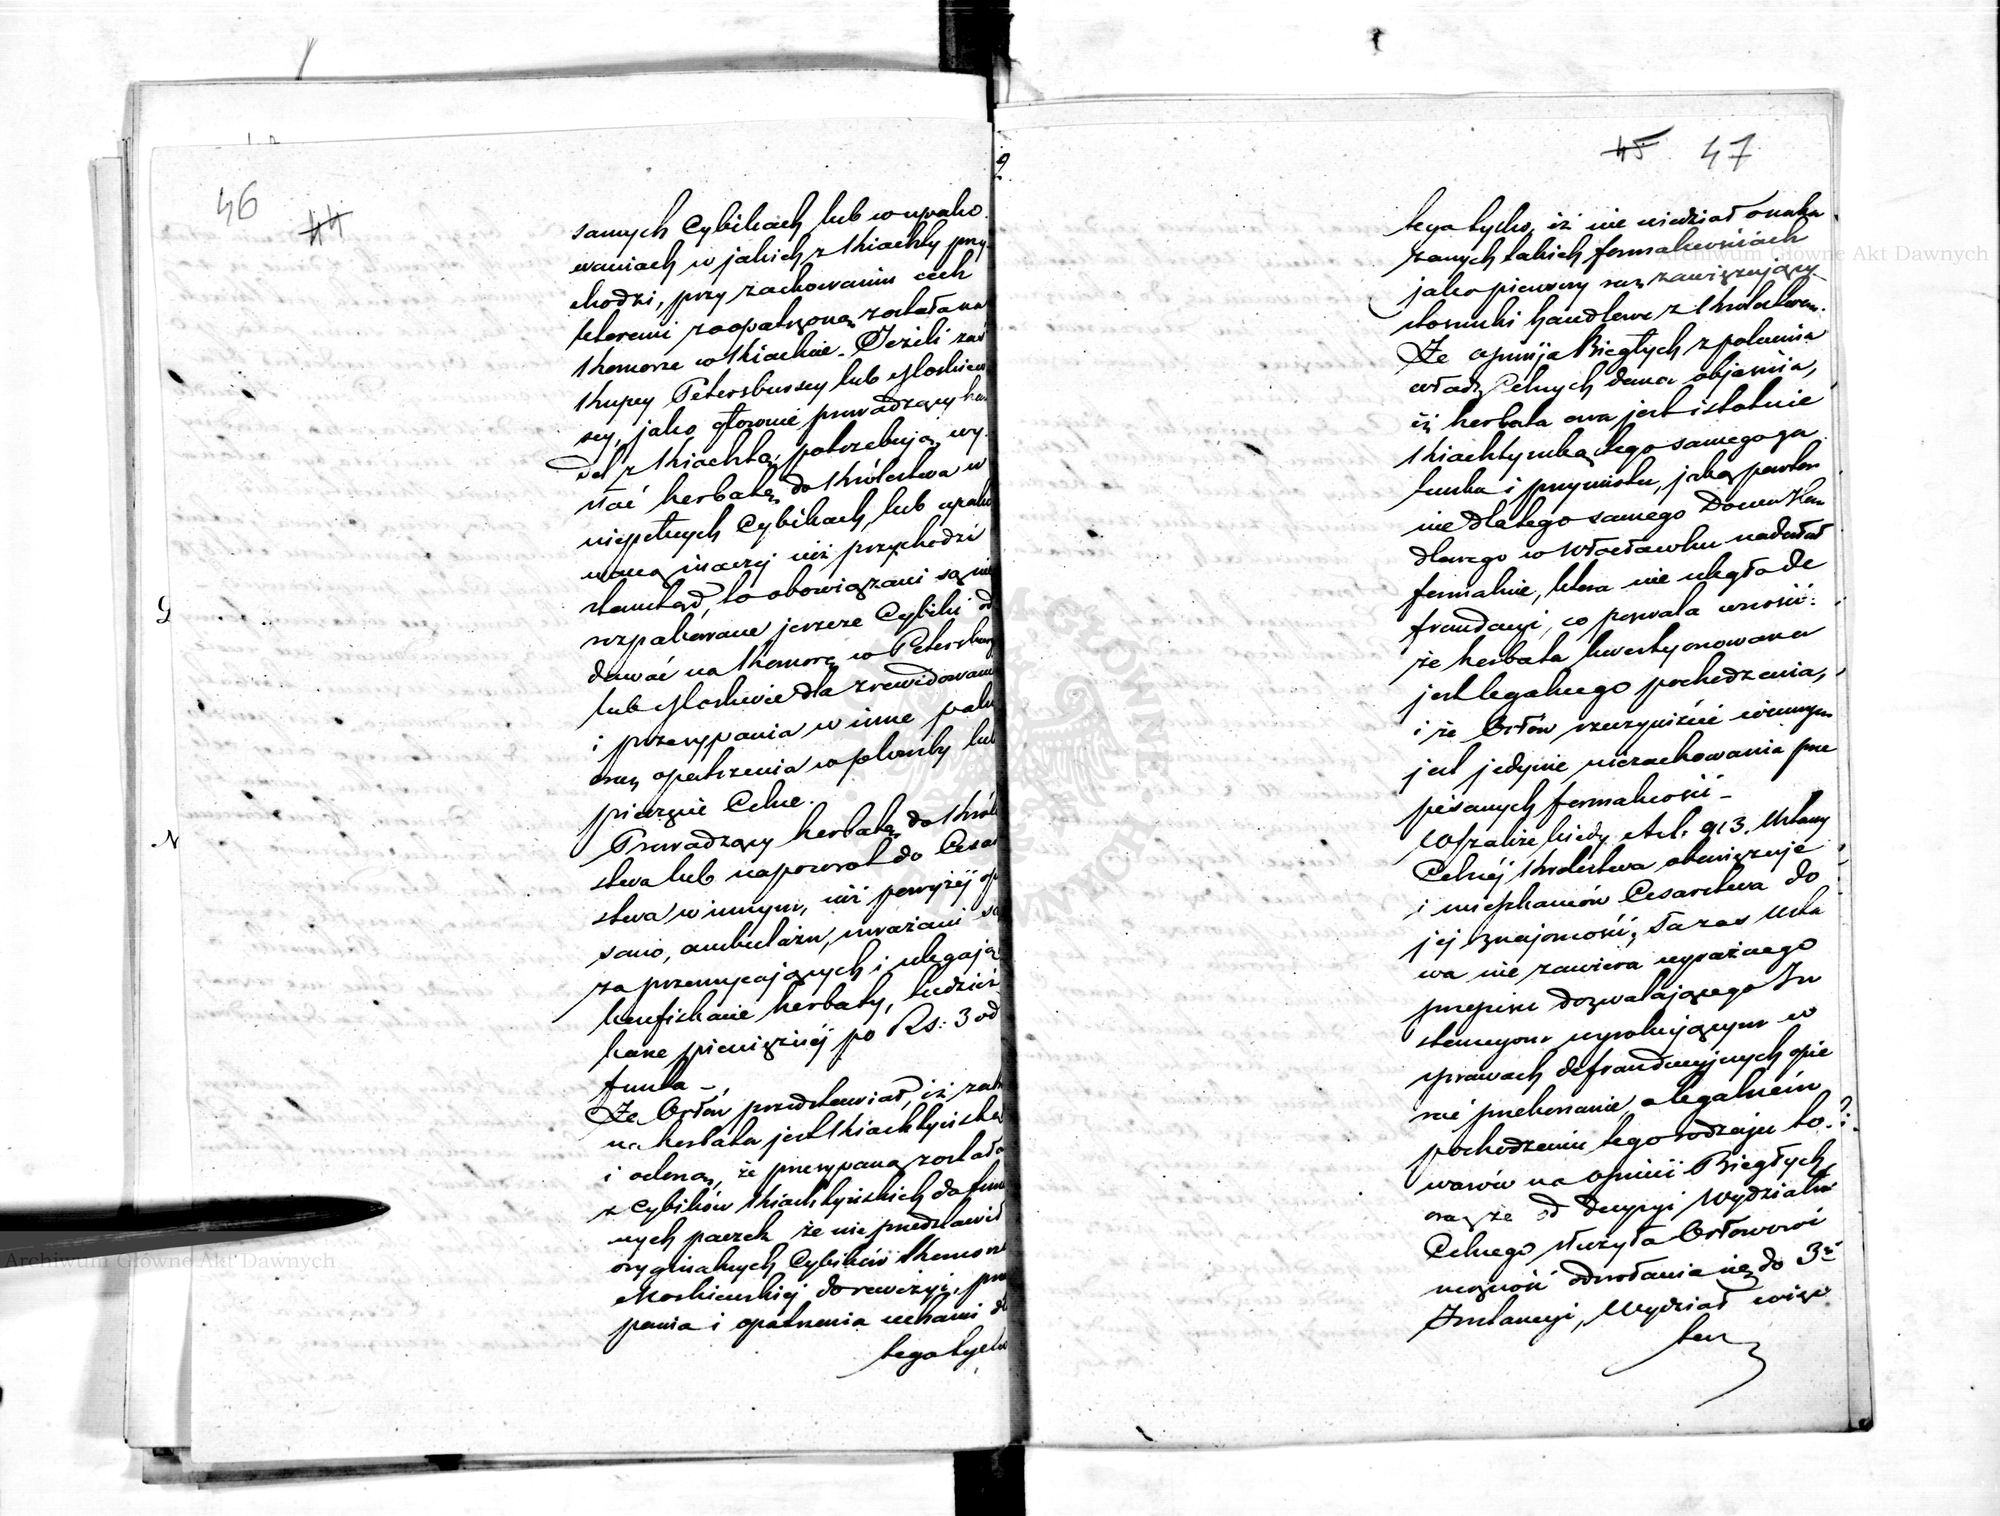 46
44
samych Cybikach lub w upako
waniach w jakich z Kiachty przy
chodzi, przy zachowaniu cech
któremi zaopatrzoną została na
Komorze w Kiachcie. Jeżeli zaś
Kupcy Petersburscy lub Moskiew
scy, jako głównie prowadzący han
del z Kiachtą, potrzebują wy
słać herbatę do Królestwa w
niepełnych Cybikach, lub opako
waną inaczej niż przychodzi
ztamtąd, to obowiązani są nie
rozpakowane jeszcze Cybiki od
dawać na Komorę w Petersburgu
lub Moskwie dla zrewidowania
i przesypania w inne pako
oraz opatrzenia w plomby lub
pieczęcie Celne.
Prowadzący herbatę do Króle
stwa lub napowrót do Cesar
stwa w innym, niż powyżej opi
sano, ambulażu, uważani są
za przemycających i ulegają
konfiskacie herbaty, tudzież
karze pieniężnej po Rs: 3 od
funta –
Że Orłów przedstawiał, iż zatr
na herbata jest Kiachtyńska
i oclona, że przesypaną została
z Cybików Kiachtyńskich do funt
wych paczek że nie przedstawił
oryginalnych Cybików Komorze
Moskiewskiej do rewizyi, prze
pania i opatrzenia cechami dla
tego tylko
45 47
tego tylko, iż nie wiedział o naka
zanych takich formalnościach
jako pierwszy raz zawiązujący
stosunki handlowe z Królestwem.
Że opinija Biegłych z polecenia
władz Celnych dana objaśnia,
iż herbata owa jest istotnie
Kiachtyńską tego samego ga
tunku i przymiotu, jaką powtór
nie dla tego samego Domu Han
dlowego w Włocławku nadesłał
formalnie, która nie uległa de
fraudacyi, co pozwala wnosić:
że herbata kwestyonowana
jest legalnego pochodzenia,
i że Orłów rzeczywiście winnym
jest jedynie niezachowania prze
pisanych formalności –
W szakże kiedy Art: 913. Ustawy
Celnej Królestwa obowiązuje
i mieszkańców Cesarstwa do
jej znajomości; taż zas Usta
wa nie zawiera wyraźnego
przepisu dozwalającego In
stancyom wyrokującym w
sprawach defraudacyjnych opie
rać przekonanie o legalnem
pochodzeniu tego rodzaju to
warów na opinii Biegłych
oraz że od decyzyi Wydziału
Celnego służyła Orłowowi
możność odwołania się do 3éj
Instancyi, Wydział więc
ten
Archiwum Główne Akt Dawnych
Archiwum Główne Akt Dawnych